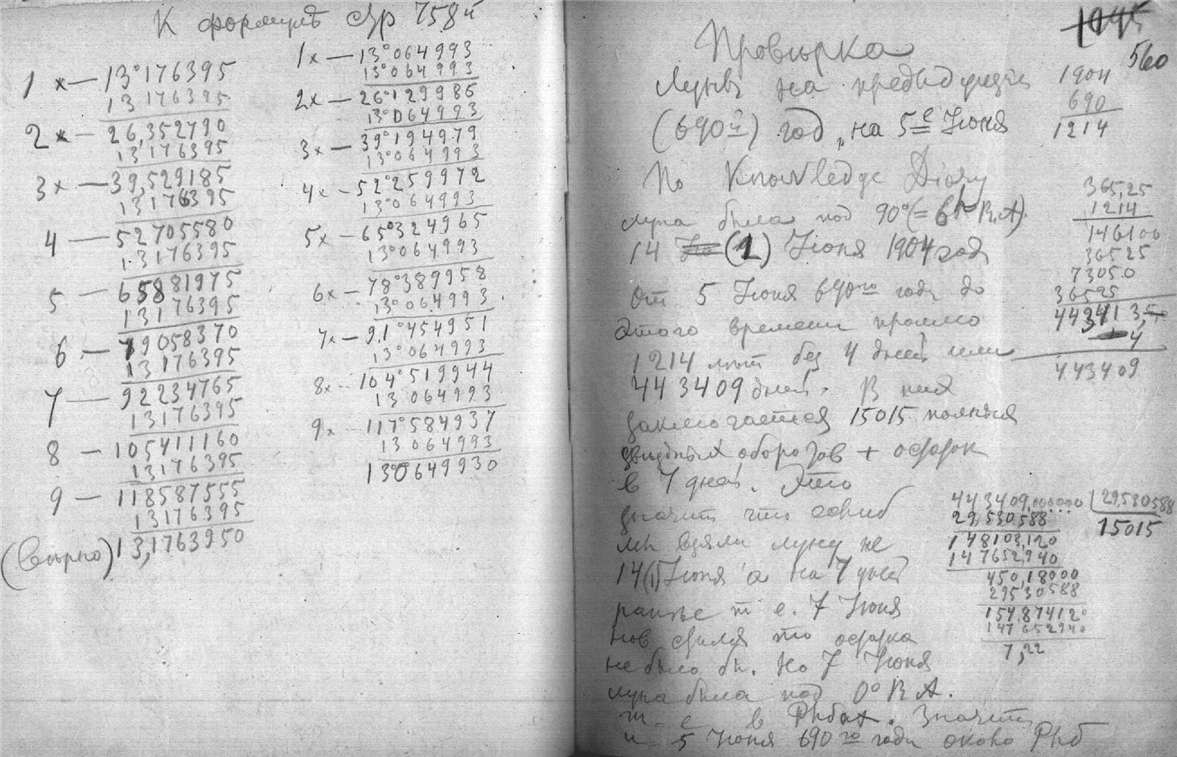 К формулѣ стр 758й
1 х — 13°176395
13 176395
2 х — 26,352790
13176395
3 х — 39,529185
13176395
4 — 52705580
13176395
5 — 65881975
13176395
6 — 79058370
13176395
7 — 92234765
13176395
8 — 105411160
13176395
9 — 118587555
13176395
(вѣрно) 13,1763950
1х — 13°064993
13°064993
2х — 26°129986
13°064993
3х — 39°194979
13°064993
4х — 52°259972
13°064993
5х — 65°324965
13°064993
6х — 78°389958
13°064993
7х — 91°454951
13°064993
8х — 104°519944
13 064993
9х — 117°584937
13 064993
130649930
560
Провѣрка
Луны на предыдущій
(690й) год „на 5е Іюня
По Knowledge Diary
луна была под 90° (= 6h R.A)
14 (1) Іюня 1904 год
От 5 Іюня 690го года до
этого времени прошло
1214 лѣт без 4 дней или
443409 дней. В них
заключается 15015 полных
оборотов +
в 7 дней. Это
значит что если б
мы взяли луну не
14(1) Іюня а на 7 дней
раньше т е. 7 Іюня
то
не было бы. Но 7 Іюня
луна была под 0° R A.
т. е. в Рыбах. Значит
и 5 Іюня 690го года около Рыб
1904
690
1214
365,25
1214
146100
36525
73050
36525
4
443409
443409,000000 | 29,530588
29,530588 15015
148103,120
147652,940
450,18000
29530588
154874120
147652940
7,22